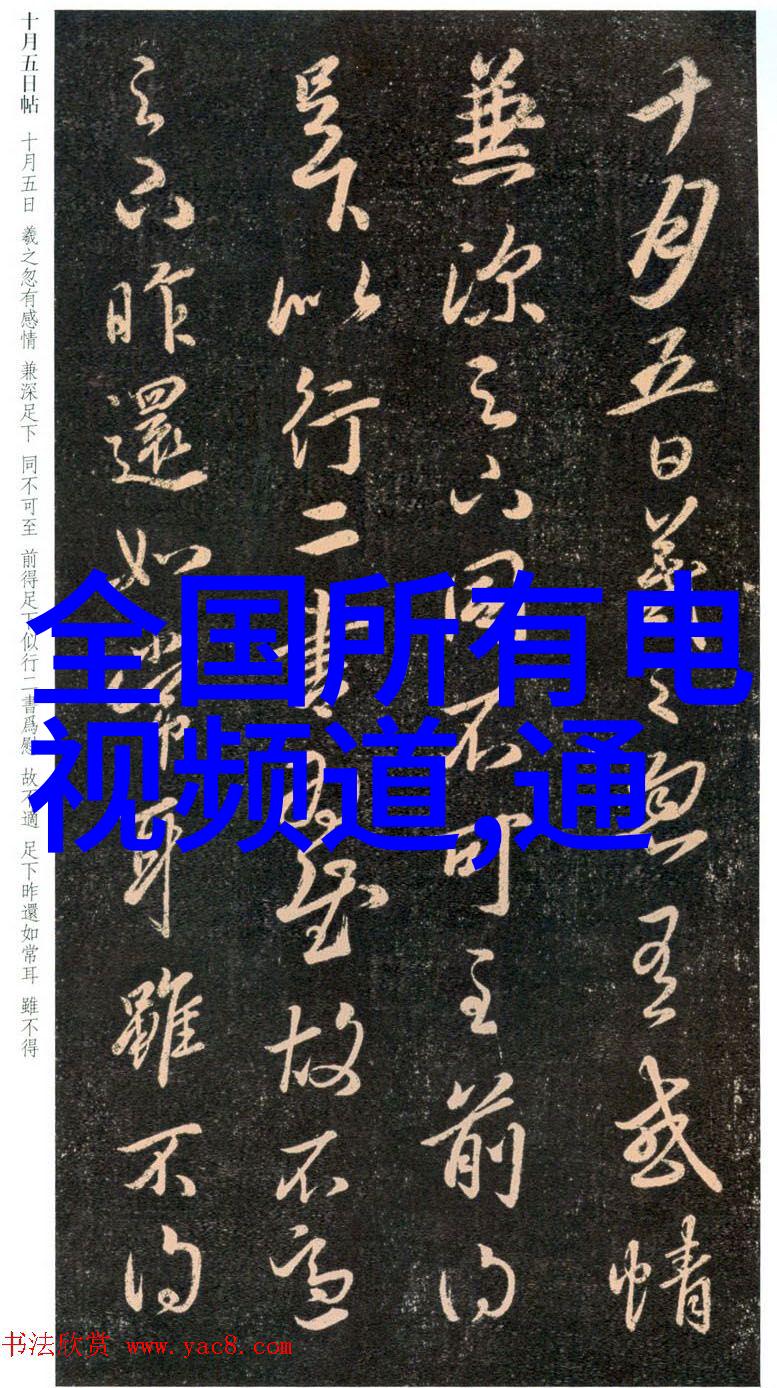 十月五日羲之忽有感情
兼深足下同不可至前得
足下似行二書爲慰故不適
足下昨還如常耳雖不得
十月五日帖 十月五日 羲之忽有感情 兼深足下 同不可至 前得足下似行二書爲慰 故不適 足下昨還如常耳 雖不得
全国所有电
视频道,通
书法欣赏 www.yac8.com